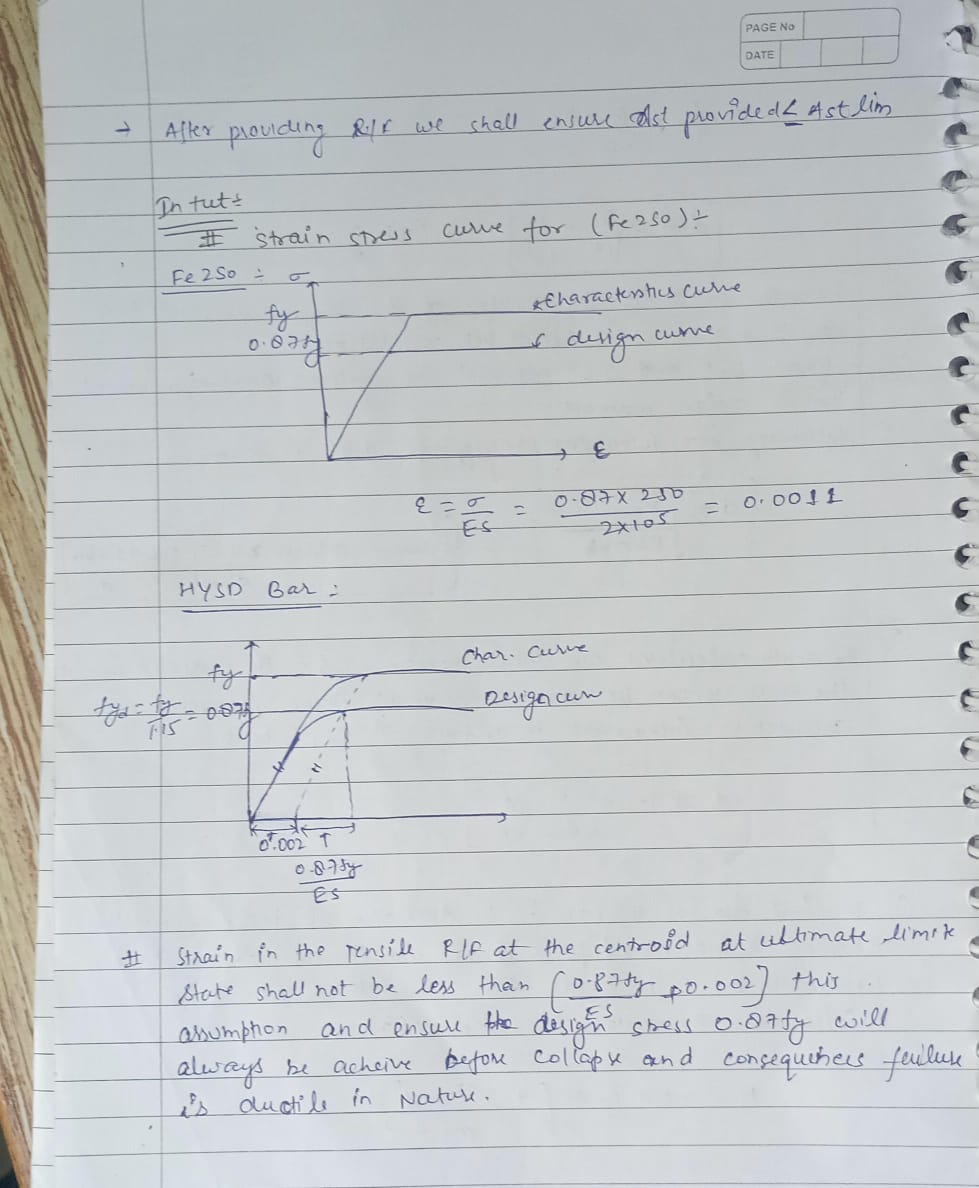 PAGE No
DATE
→ After providing R/F we shall ensure Ast provided ≤ Ast lim
In tut :-
# strain stress curve for (Fe250) :-
Fe 250 :- σ
fy
characteristics curve
0.87fy
design curve
ε
ε = σ/ES = 0.87 x 250/2x105 = 0.0011
HYSD Bar :
fy
Char. Curve
fyd = fy/1.15 = 0.87fy
Design cur
0.002
0.87fy/ES
# Strain in the Tensile R/F at the centroid at ultimate limit
state shall not be less than (0.87fy/ES + 0.002] this
assumption and ensure the design stress 0.87fy will
always be acheive before collapse and consequences failure
is ductile in Nature.